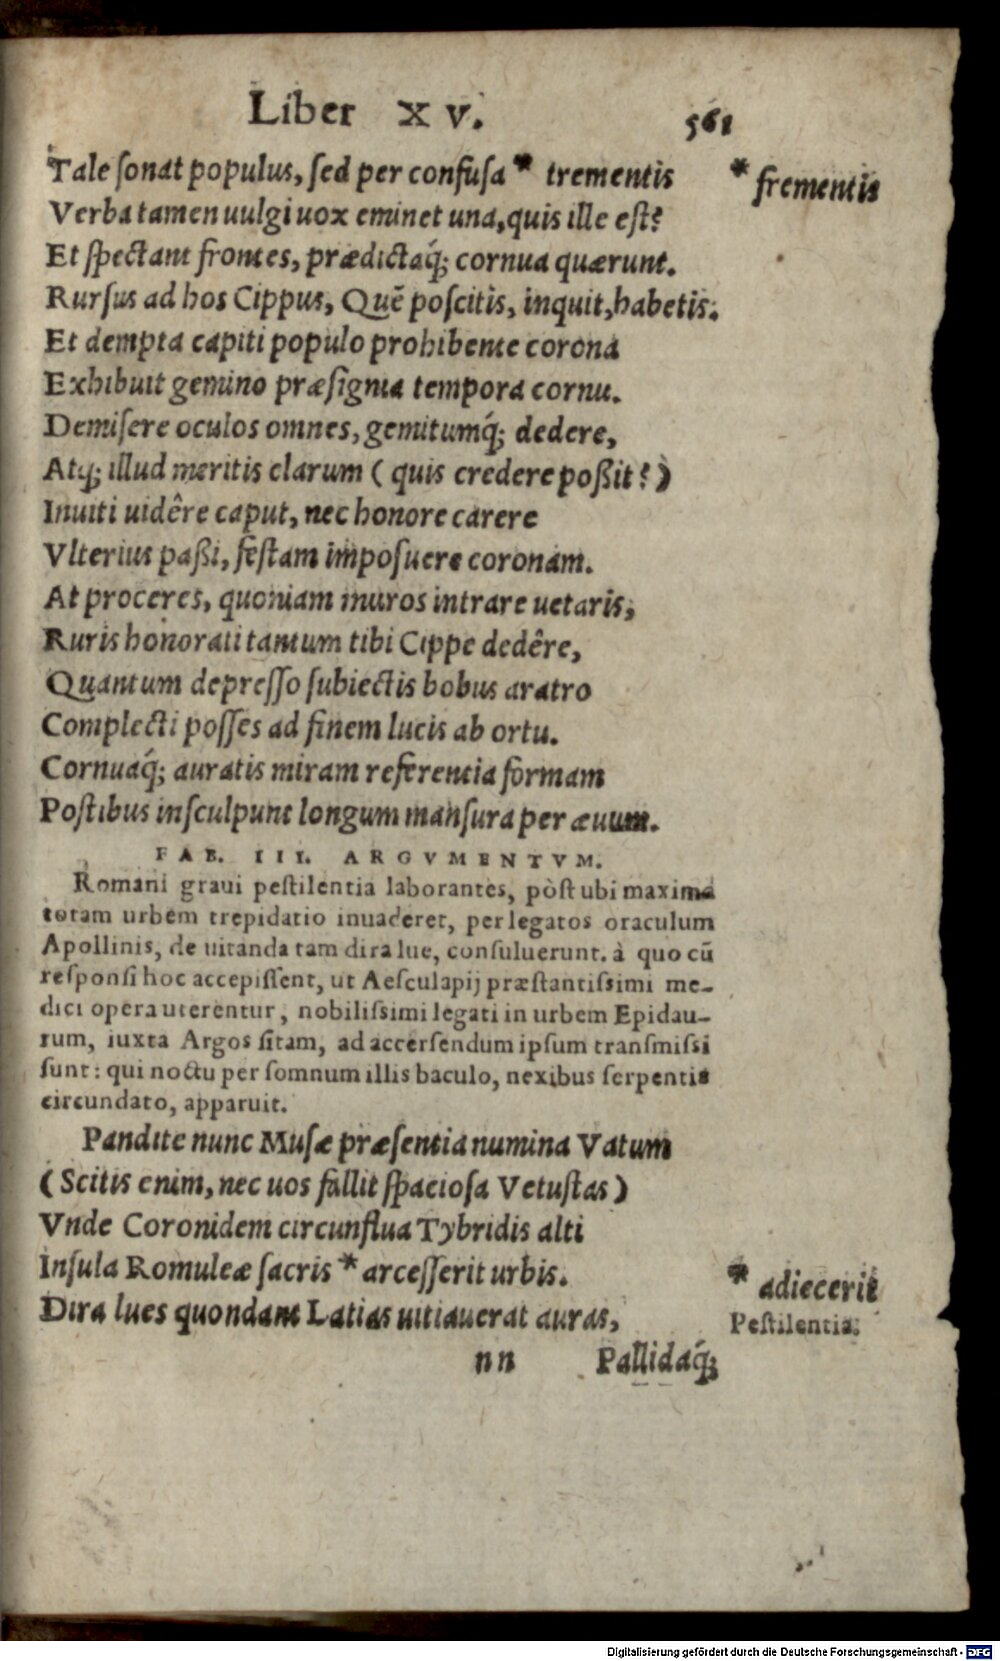 Liber X V. 561
Tale ſonat populus, ſed per confuſa * trementis * frementis
Verba tamen uulgi uox eminet una, quis ille eſt?
Et ſpectant frontes, prædictaq́; cornua quærunt.
Rurſus ad hos Cippus, Quē poſcitis, inquit, habetis.
Et dempta capiti populo prohibente corona
Exhibuit gemino præſignia tempora cornu.
Demiſere oculos omnes, gemitumq́; dedere,
Atq; illud meritis clarum ( quis credere poßit? )
Inuiti uidêre caput, nec honore carere
Vlterius paßi, feſtam impoſuere coronam.
At proceres, quoniam muros intrare uetaris,
Ruris honorati tantum tibi Cippe dedêre,
Quantum depreſſo ſubiectis bobus aratro
Complecti poſſes ad finem lucis ab ortu.
Cornuaq́; auratis miram referentia formam
Poſtibus inſculpunt longum manſura per æuum.
FAB. III. ARGVMENTVM.
Romani graui peſtilentia laborantes, pòſt ubi maxima
totam urbem trepidatio inuaderet, per legatos oraculum
Apollinis, de uitanda tam dira lue, conſuluerunt. à quo cū
reſponſi hoc accepiſſent, ut Aeſculapij præſtantiſsimi me-
dici opera uterentur, nobiliſsimi legati in urbem Epidau-
rum, iuxta Argos ſitam, ad accerſendum ipſum tranſmiſsi
ſunt: qui noctu per ſomnum illis baculo, nexibus ſerpentis
circundato, apparuit.
Pandite nunc Muſæ præſentia numina Vatum
( Scitis enim, nec uos fallit ſpacioſa Vetuſtas )
Vnde Coronidem circunflua Tybridis alti
Inſula Romuleæ ſacris * arceſſerit urbis. * adiecerit
Dira lues quondam Latias uitiauerat auras, Peſtilentia.
nn Pallidaq́;
Digitalisierung gefördert durch die Deutsche Forschungsgemeinschaft - DFG